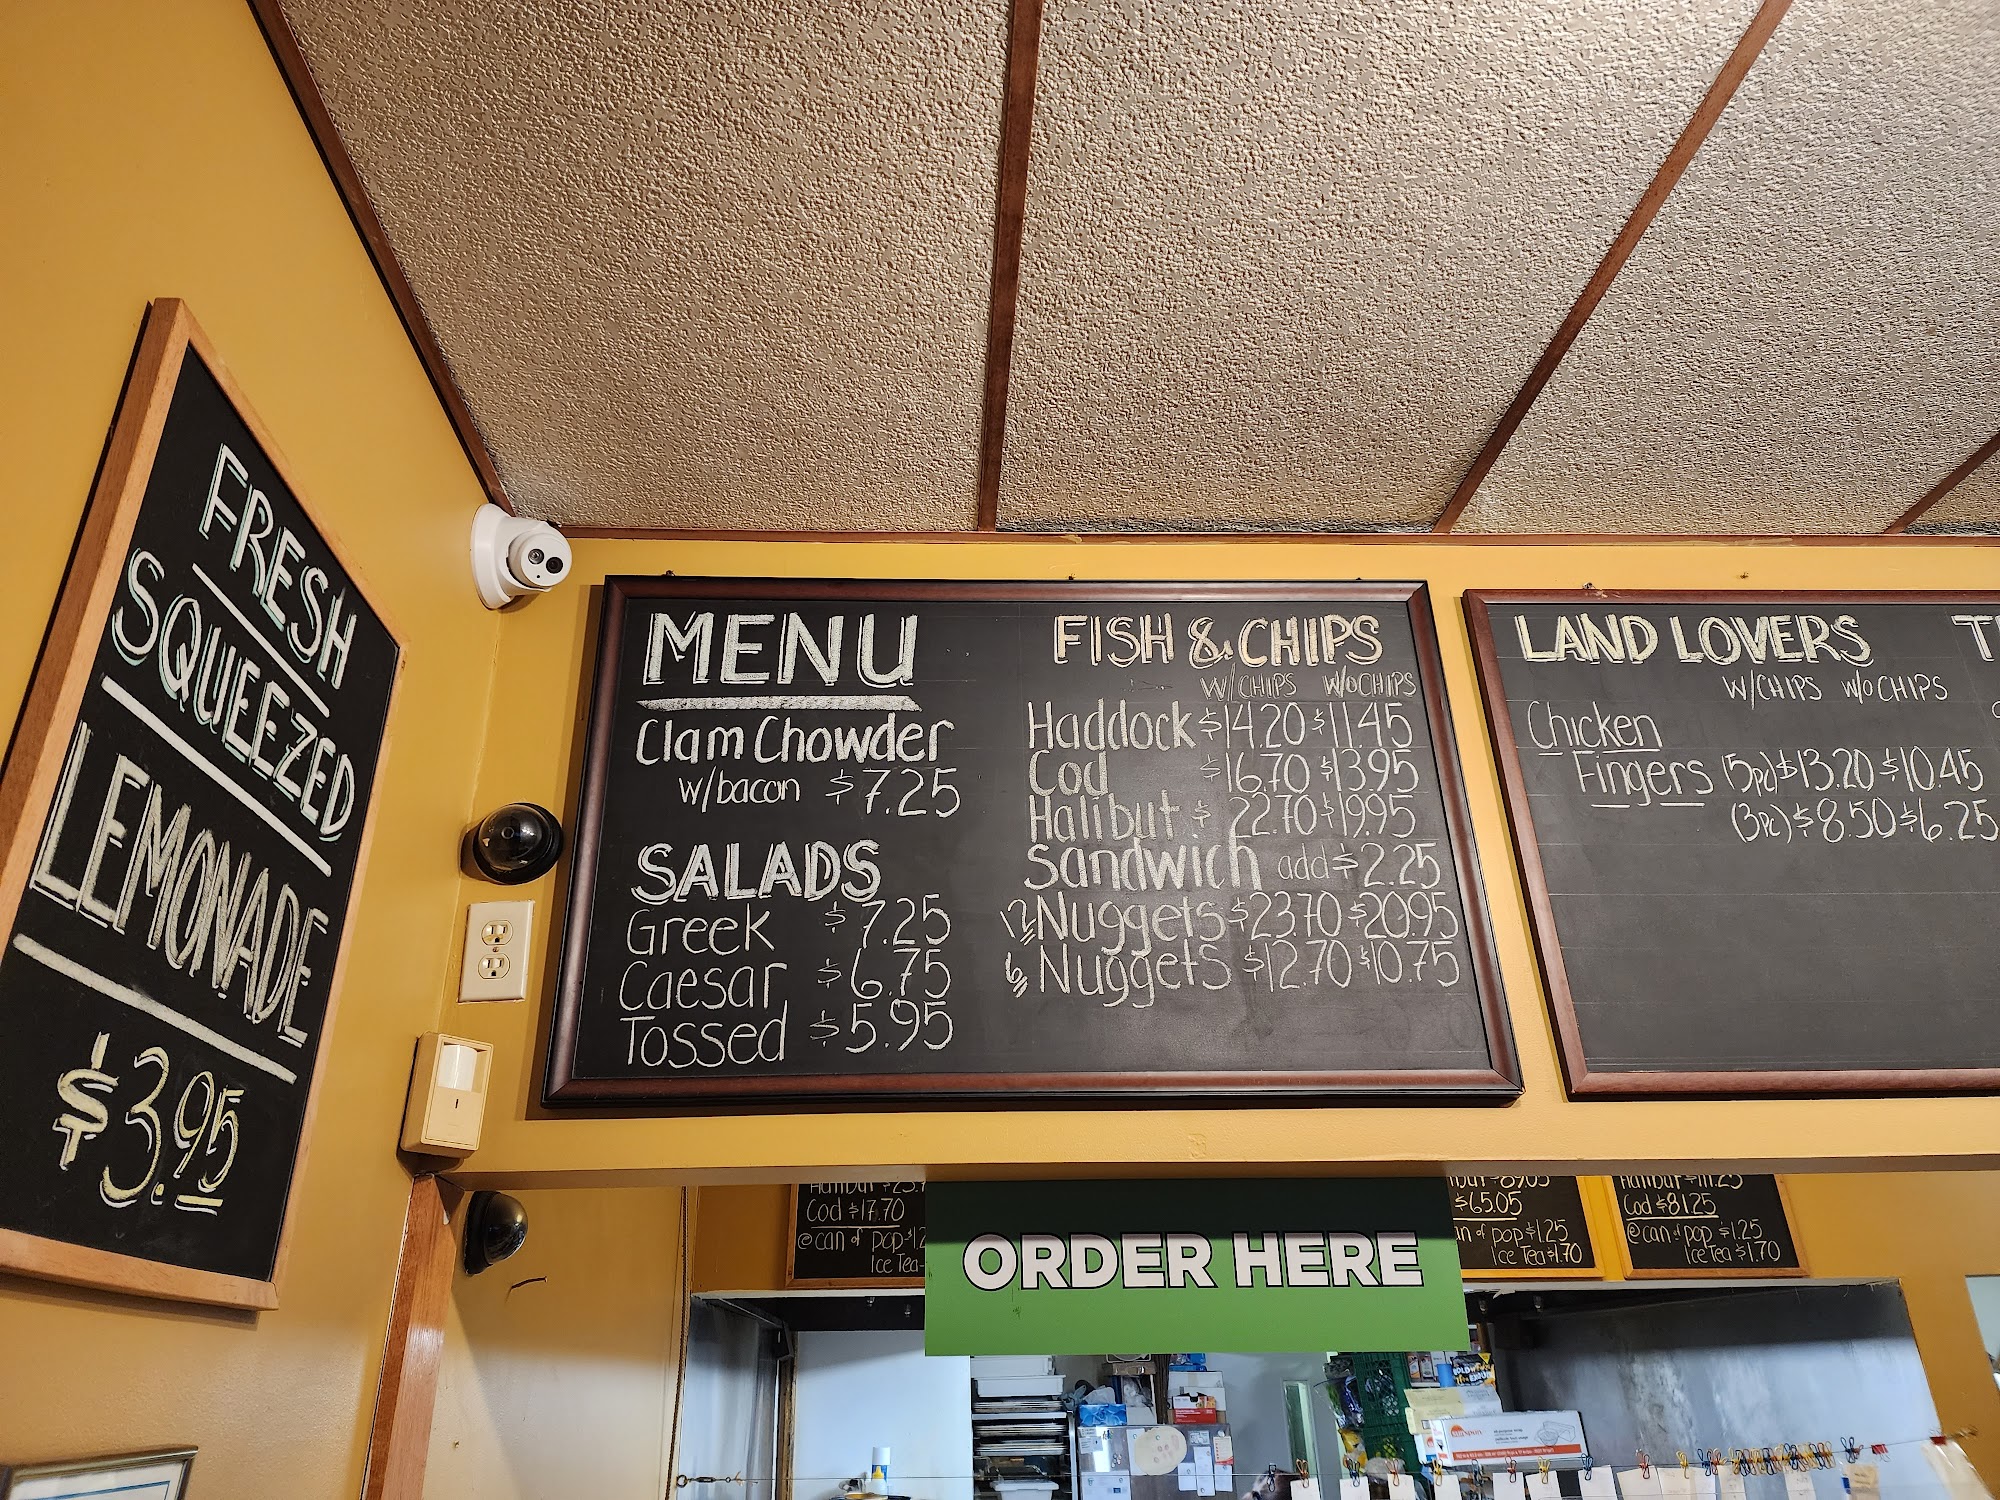 FRESH
SQUEEZED
LEMONADE
$3.95
MENU
Clam Chowder
w/bacon $7.25
SALADS
Greek $7.25
Caesar $6.75
Tossed $5.95
FISH & CHIPS
W/CHIPS W/oCHIPS
Haddock $14.20 $11.45
Cod $16.70 $13.95
Halibut $22.70 $19.95
Sandwich add $2.25
12 Nuggets $23.70 $20.95
6 Nuggets $12.70 $10.75
LAND LOVERS
W/CHIPS W/oCHIPS
Chicken
Fingers (5pc) $13.20 $10.45
(3pc) $8.50 $6.25
Cod $17.70
@ can of pop
Ice Tea
ORDER HERE
$65.05
pop $1.25
Ice Tea $1.70
Halibut $111.25
Cod $81.25
@ can of pop $1.25
Ice Tea $1.70